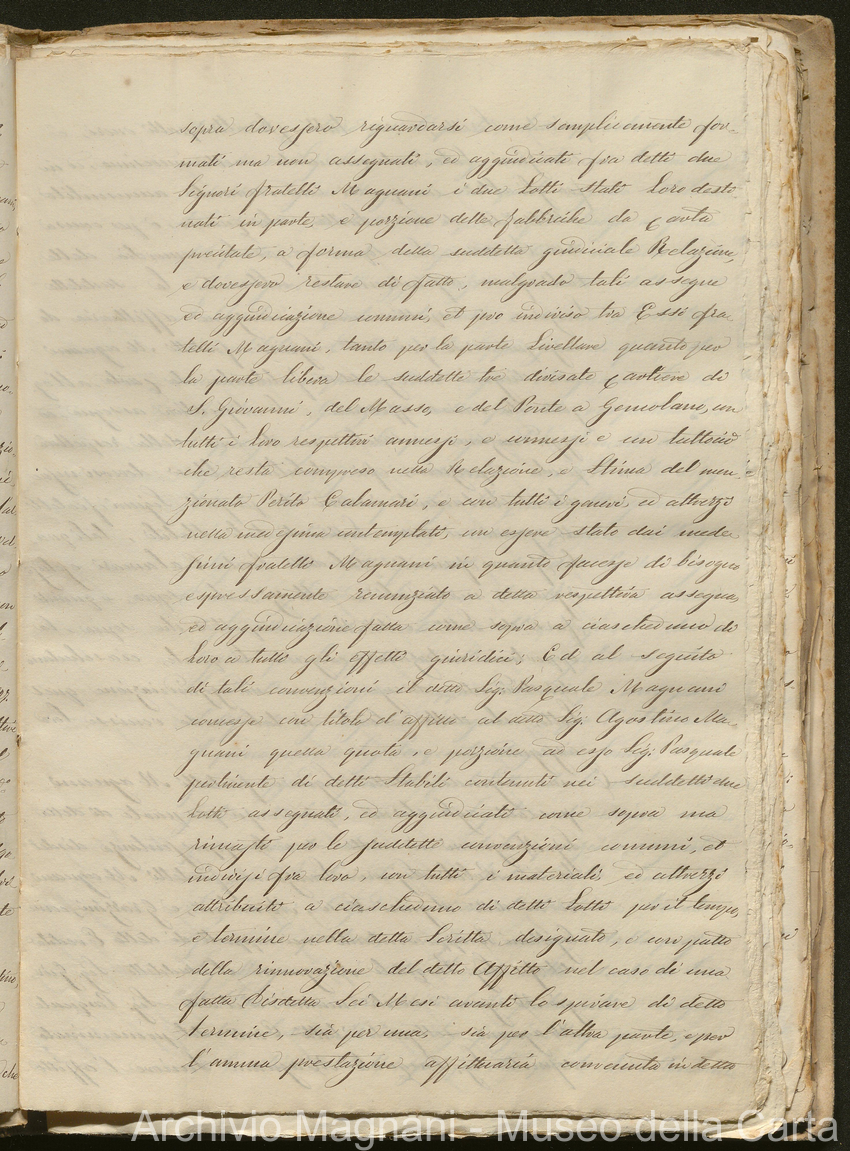 sopra dovessero riguardarsi come semplicemente for-
mati ma non assegnati, ed aggiudicati fra detti due
Signori fratelli Magnani i due Lotti stati Loro desti
nati in parte, e porzione delle fabbriche da Carta
precitate, a forma della suddetta giudiciale Relazione,
e dovessero restare di fatto, malgrado tali assegne
ed aggiudicazione comuni, et pro indiviso tra Essi fra
telli Magnani, tanto per la parte Livellare quanto per
la parte libera le suddette tre divisate Cartiere di
S. Giovanni, del Masso, e del Ponte a Gemolano, con
tutti i Loro respettivi annessi, e connessi e con tuttociò
che resta compreso nella Relazione, e Stima del men-
zionato Perito Calamari, e con tutti i generi, ed attrezzi
nella medesima contemplati, con essere stato dai mede
simi fratelli Magnani in quanto facesse di bisogno
espressamente renunziato a detta respettiva assegna,
ed aggiudicazione fatta come sopra a ciascheduno di
Loro a tutti gli effetti giuridici; Ed al seguito
di tali convenzioni il detto Sig: Pasquale Magnani
concesse con titolo d'affitto al detto Sig: Agostino Ma-
gnani quella quota, e porzione ad esso Sig: Pasquale
pertinente di detti Stabili contenuti nei suddetti due
Lotti assegnati, ed aggiudicati come sopra ma
rimasti per le suddette convenzioni comuni, et
indivisi fra loro, con tutti i materiali, ed attrezzi
attribuiti a ciascheduno di detti Lotti per il tempo,
e termine nella detta Scritta designato, e con patto
della rinnovazione del detto Affitto nel caso di una
fatta Disdetta Sei Mesi avanti lo spirare di detto
termine, sia per una, sia per l'altra parte, e per
l'annua prestazione affittuaria convenuta in detto
Archivio Magnani - Museo della Carta